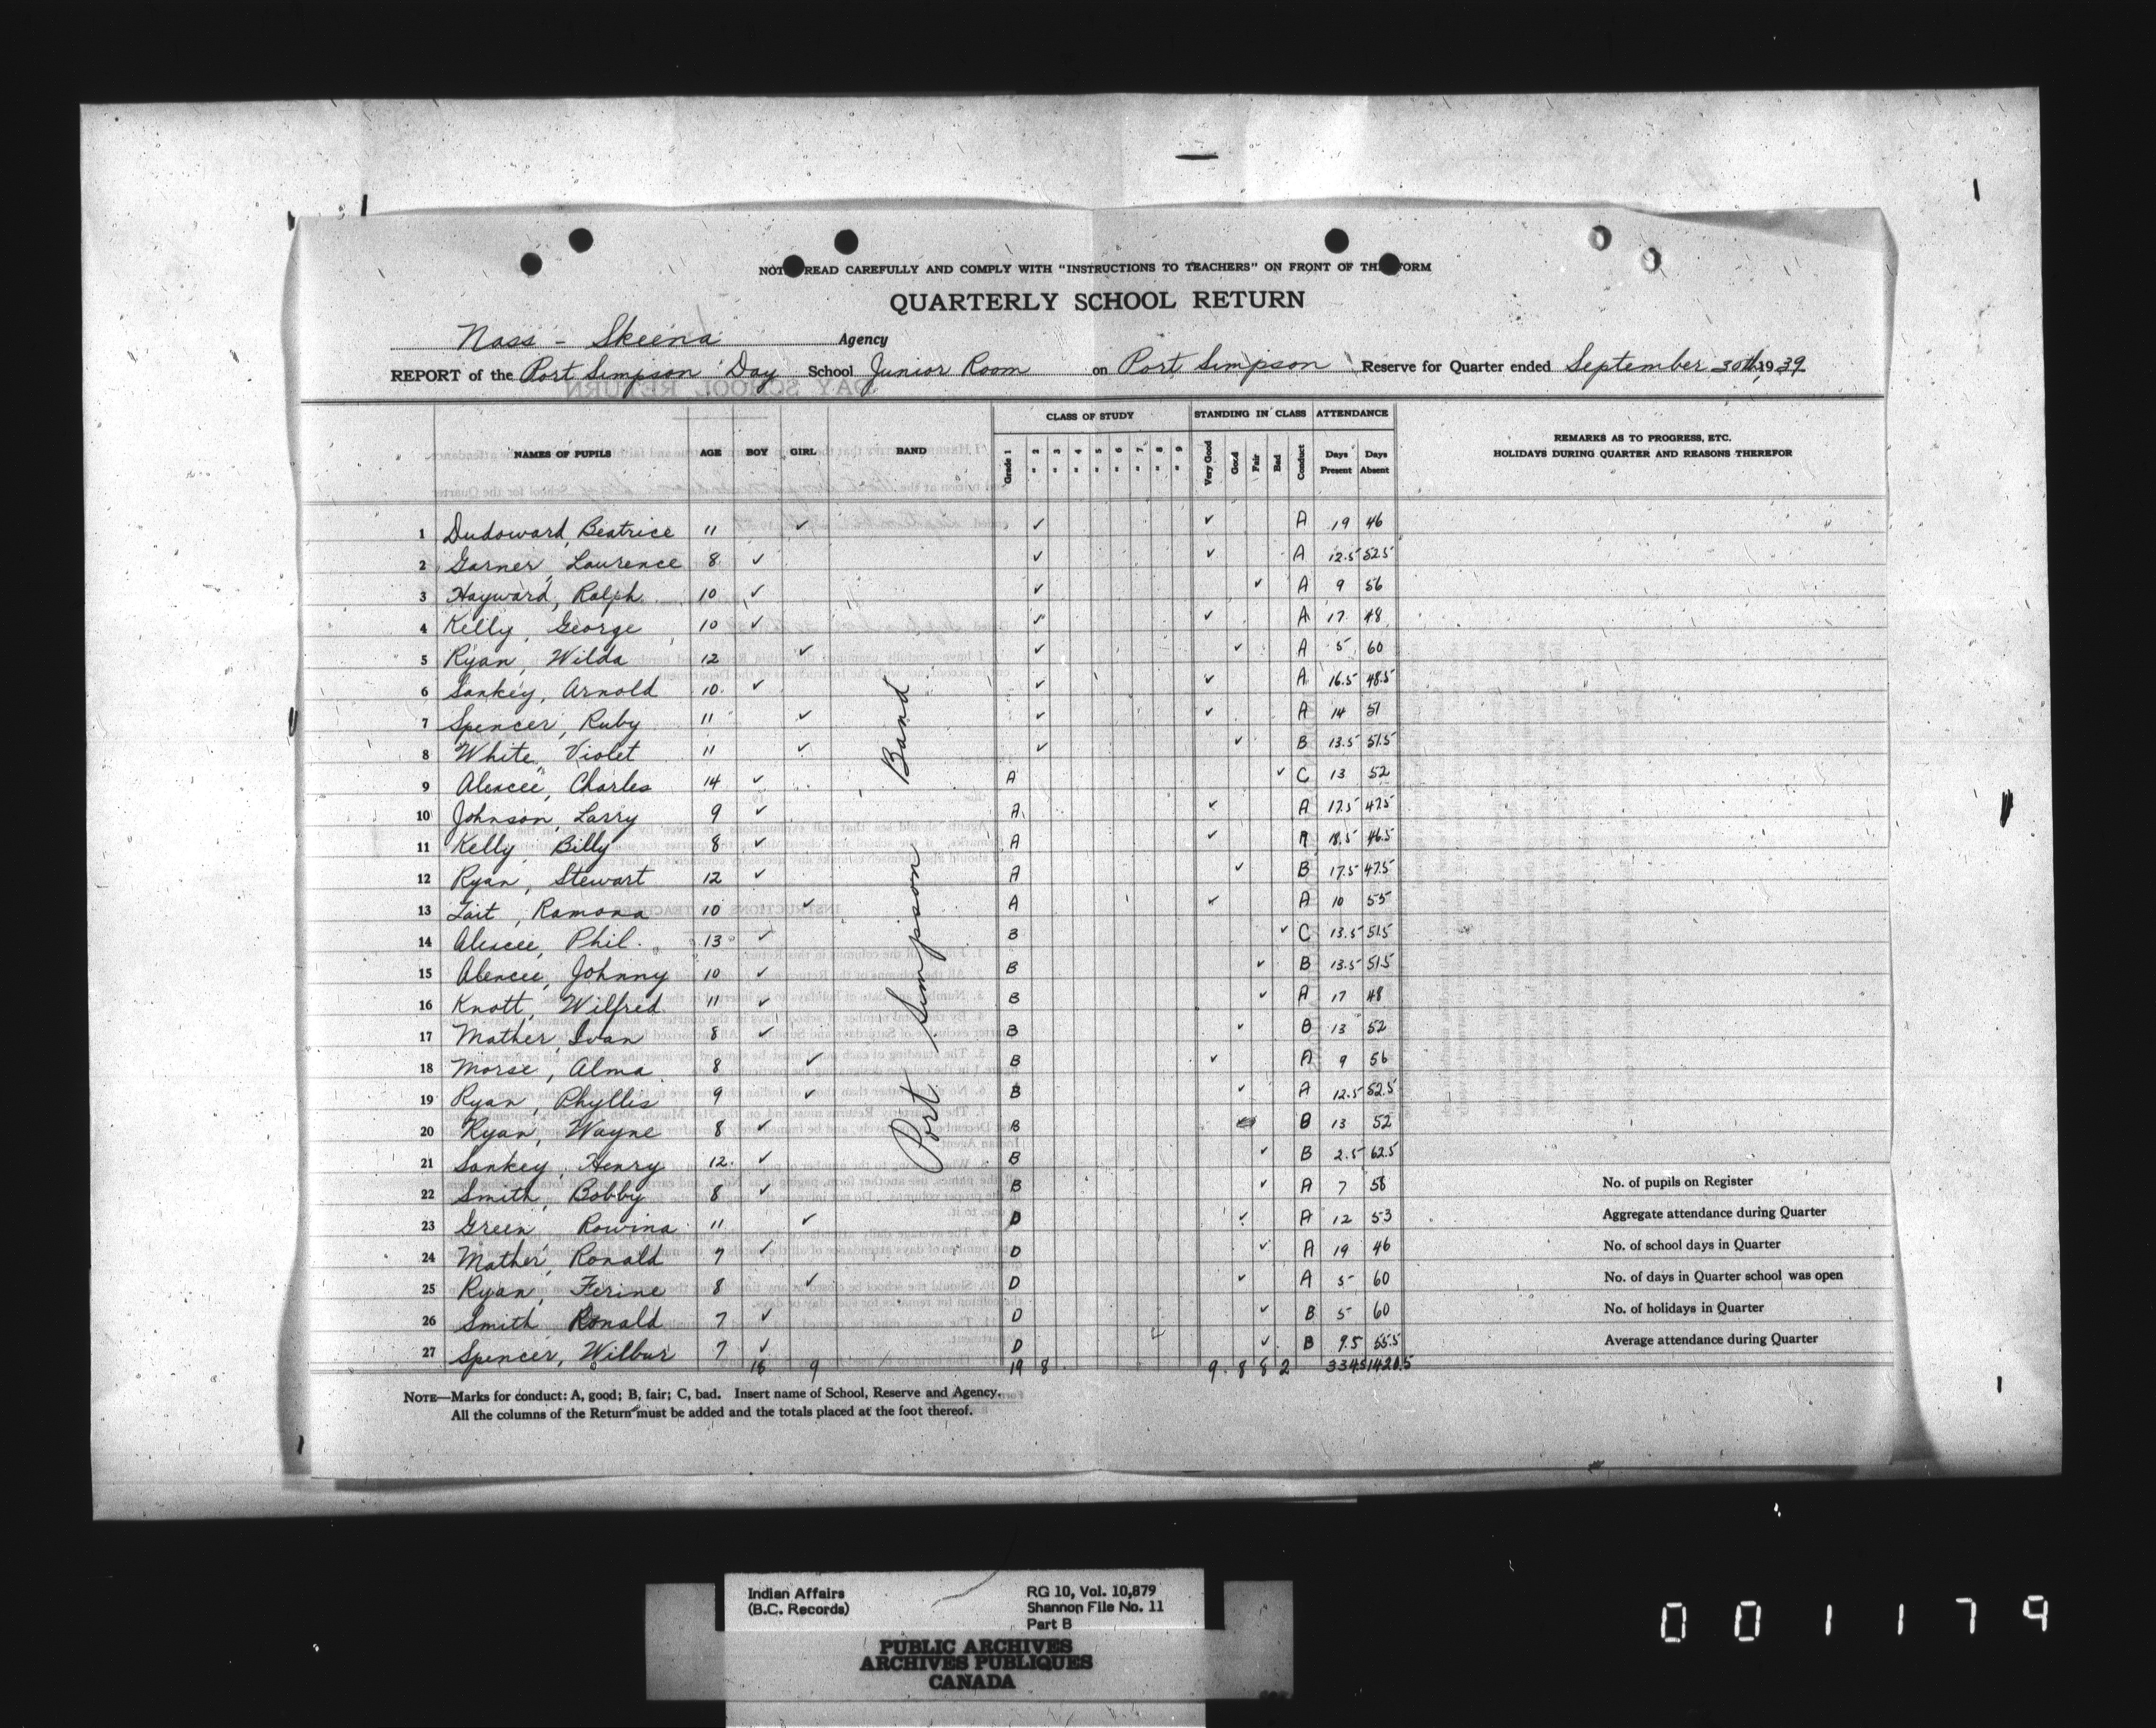 NOTE READ CAREFULLY AND COMPLY WITH "INSTRUCTIONS TO TEACHERS" ON FRONT OF THIS FORM
QUARTERLY SCHOOL RETURN
Nass - Skeena Agency
REPORT of the Port Simpson Day School Junior Room on Port Simpson Reserve for Quarter ended September 30th, 1939
NAMES OF PUPILS AGE BOY GIRL BAND CLASS OF STUDY STANDING IN CLASS ATTENDANCE REMARKS AS TO PROGRESS, ETC.
HOLIDAYS DURING QUARTER AND REASONS THEREFOR
Grade 1 " 2 " 3 " 4 " 5 " 6 " 7 " 8 " 9 Very Good Good Fair Bad Conduct Days Present Days Absent
Port Simpson Band
1 Dudoward, Beatrice 11 ✓ ✓ ✓ A 19 46
2 Garner, Laurence 8 ✓ ✓ ✓ A 12.5 52.5
3 Hayward, Ralph 10 ✓ ✓ ✓ A 9 56
4 Kelly, George 10 ✓ ✓ ✓ A 17 48
5 Ryan, Wilda 12 ✓ ✓ ✓ A 5 60
6 Sankey, Arnold 10 ✓ ✓ ✓ A 16.5 48.5
7 Spencer, Ruby 11 ✓ ✓ ✓ A 14 51
8 White, Violet 11 ✓ ✓ ✓ B 13.5 51.5
9 Charles 14 ✓ A ✓ C 13 52
10 Johnson, Larry 9 ✓ A ✓ A 17.5 47.5
11 Kelly, Billy 8 ✓ A ✓ A 18.5 46.5
12 Ryan, Stewart 12 ✓ A ✓ B 17.5 47.5
13 Tait, Ramona 10 ✓ A ✓ A 10 55
14 Phil. 13 ✓ B ✓ C 13.5 51.5
15 Johnny 10 ✓ B ✓ B 13.5 51.5
16 Knott, Wilfred 11 ✓ B ✓ A 17 48
17 Mather, Ivan 8 ✓ B ✓ B 13 52
18 Morse, Alma 8 ✓ B ✓ A 9 56
19 Ryan, Phyllis 9 ✓ B ✓ A 12.5 52.5
20 Ryan, Wayne 8 ✓ B B 13 52
21 Sankey, Henry 12 ✓ B ✓ B 2.5 62.5
22 Smith, Bobby 8 ✓ B ✓ A 7 58 No. of pupils on Register
23 Green, Rowina 11 ✓ D ✓ A 12 53 Aggregate attendance during Quarter
24 Mather, Ronald 7 ✓ D ✓ A 19 46 No. of school days in Quarter
25 Ryan, Ferine 8 ✓ D ✓ A 5 60 No. of days in Quarter school was open
26 Smith, Ronald 7 ✓ D ✓ B 5 60 No. of holidays in Quarter
27 Spencer, Wilbur 7 ✓ D ✓ B 9.5 55.5 Average attendance during Quarter
18 9 19 8 9 8 8 2 334.5 1420.5
NOTE—Marks for conduct: A, good; B, fair; C, bad. Insert name of School, Reserve and Agency.
All the columns of the Return must be added and the totals placed at the foot thereof.
Indian Affairs
(B.C. Records)
RG 10, Vol. 10,879
Shannon File No. 11
Part B
PUBLIC ARCHIVES
ARCHIVES PUBLIQUES
CANADA
001179